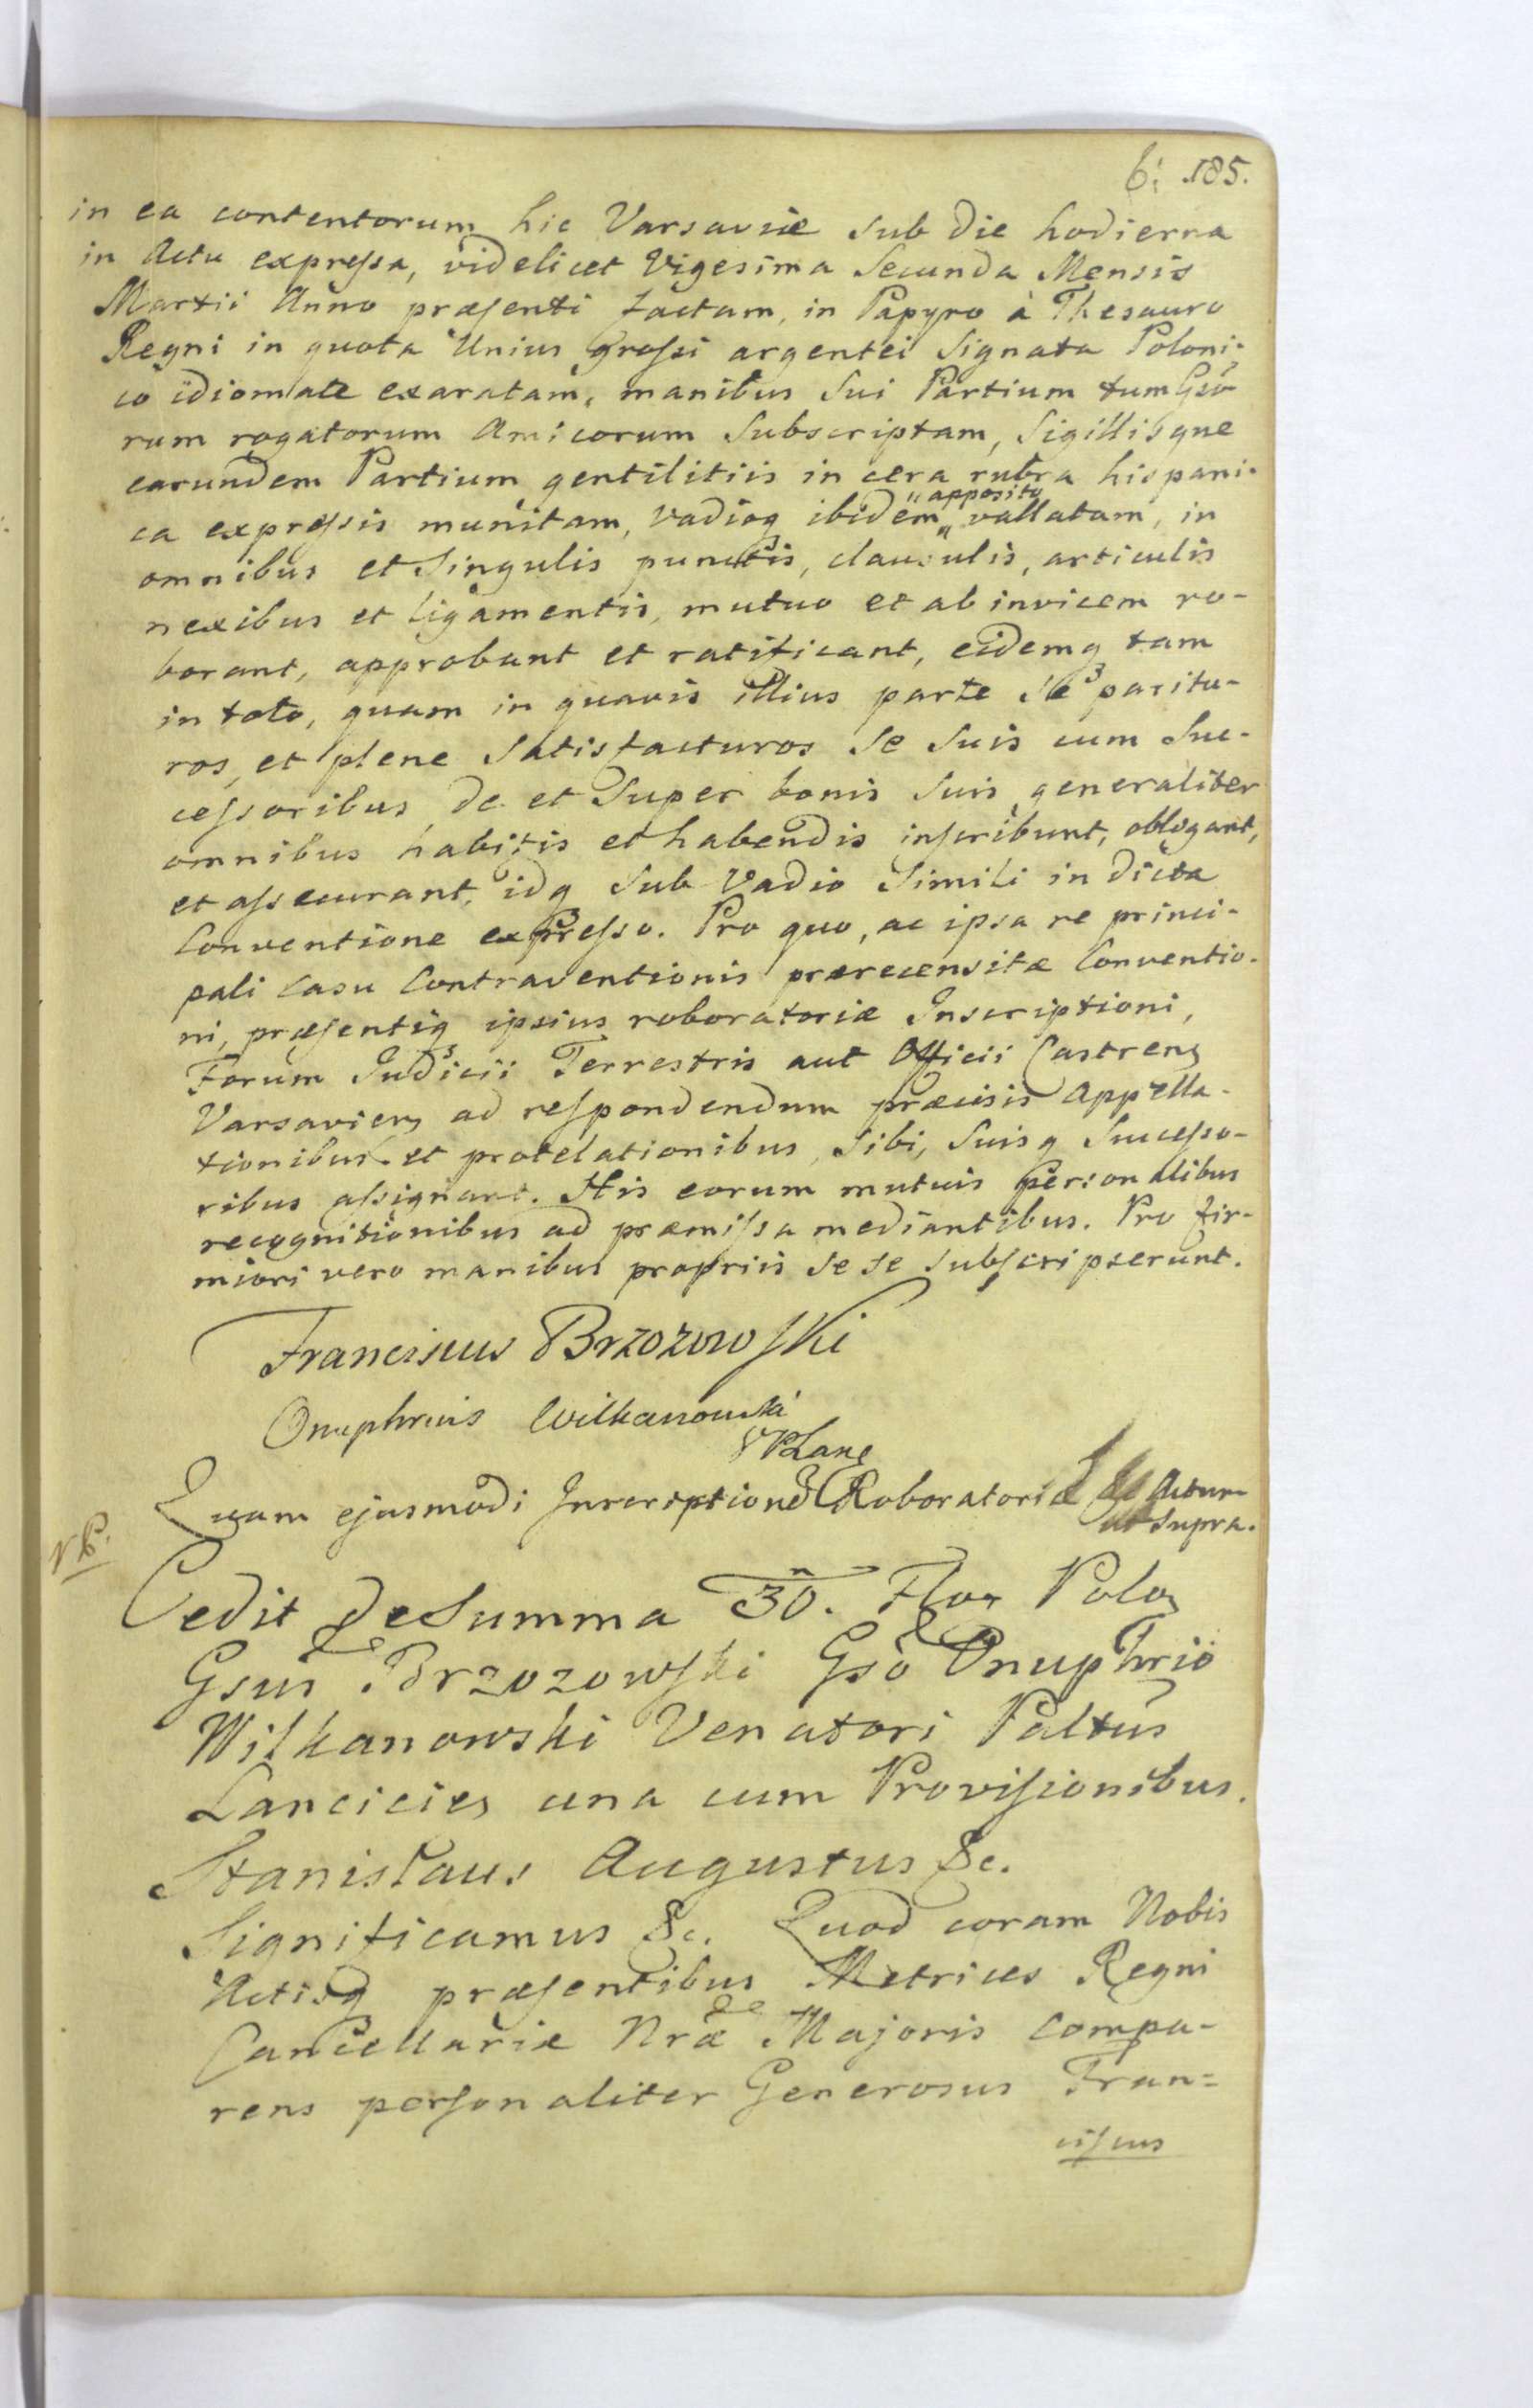 6: 185.
in ea contentorum hic Varsaviæ sub die hodierna
in Actu expressa, videlicet Vigesima Secunda Mensis
Martii Anno præsenti factam, in Papyro à Thesauro
Regni in quota Unius grossi argentei Signata Poloni-
co idiomate exaratam, manibus sui Partium tum Gsō
rum rogatorum Amicorum Subscriptam, Sigillisque
earundem Partium gentilitiis in cera rubra hispani-
ca expressis munitam, vadioq ibidem "apposito" vallatam, in
omnibus et Singulis punctis, clausulis, articulis
nexibus et ligamentis, mutuo et ab invicem ro-
borant, approbant et ratificant, eidemq tam
in toto, quam in quavis illius parte se paritu-
ros, et plene Satisfacturos se suis cum Suc-
cessoribus de et Super bonis suis generaliter
omnibus habitis et habendis inscribunt, obligant,
et assecurant, idq sub Vadio simili in dicta
Conventione expresso. Pro quo, ac ipsa re princi-
pali casu Contraventionis prærecensitæ Conventio-
ni, præsentiq ipsius roboratoriæ Inscriptioni,
Forum Judicii Terrestris aut Officii Castrens
Varsaviens ad respondendum præcisis Appella-
tionibus et protelationibus, sibi, suisq Successo-
ribus assignant. His eorum mutuis personalibus
recognitionibus ad præmissa mediantibus. Pro fir-
miori vero manibus propriis se se subscripserunt.
Franciscus Brzozowski
Onuphrius Wilkanowski
VPLanc
Quam ejusmodi Inscriptione Roboratoria Actum
ut supra.
Cedit de Summa 30. Flor Polo
Gsus Brzozowski Gsō Onuphrio
Wilkanowski Venatori Paltūs
Lancicies una cum Provisionibus.
Stanislaus Augustus &c.
Significamus &c. Quod coram Nobis
Actisq præsentibus Metrices Regni
Cancellariæ Nræ Majoris compa-
rens personaliter Generosus Fran=
ciscus